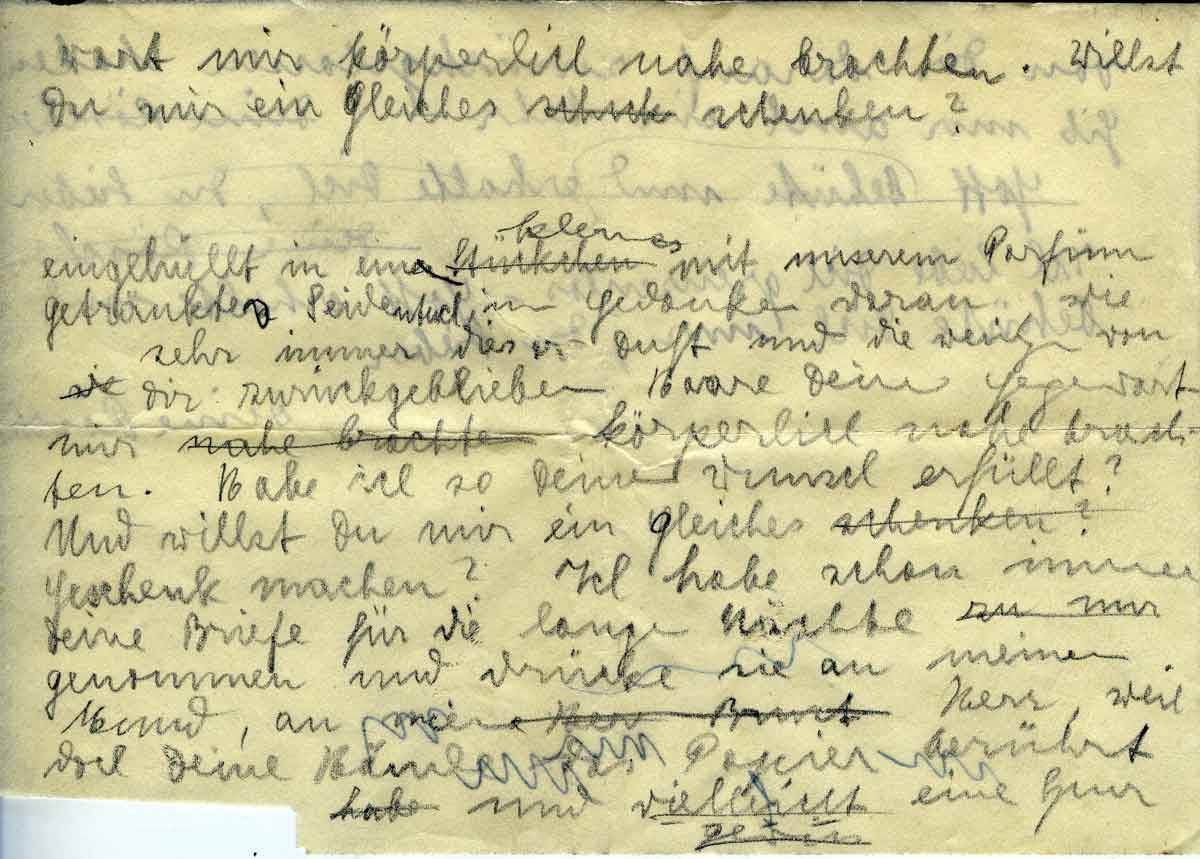 wart mir körperlich nahe brachten. Willst
Du mir ein Gleiches schenken?
kleines
eingehüllt in ein Stückchen mit unserem Parfüm
getränktes Seidentuch im Gedanken daran wie
sehr immer dieser Duft und die wenigen von
dir zurückgebliebenen Haare Deine Gegenwart
mir nahe brachte körperlich nahe brach-
ten. Habe ich so Deinen Wunsch erfüllt?
Und willst Du mir ein gleiches schenken?
Geschenk machen? Ich habe schon immer
Deine Briefe für die langen Nächte zu mir
genommen und drücke sie an meinen
Mund, an mein Herz, weil
doch Deine Hände das Papier berührt
habe und vielleicht eine